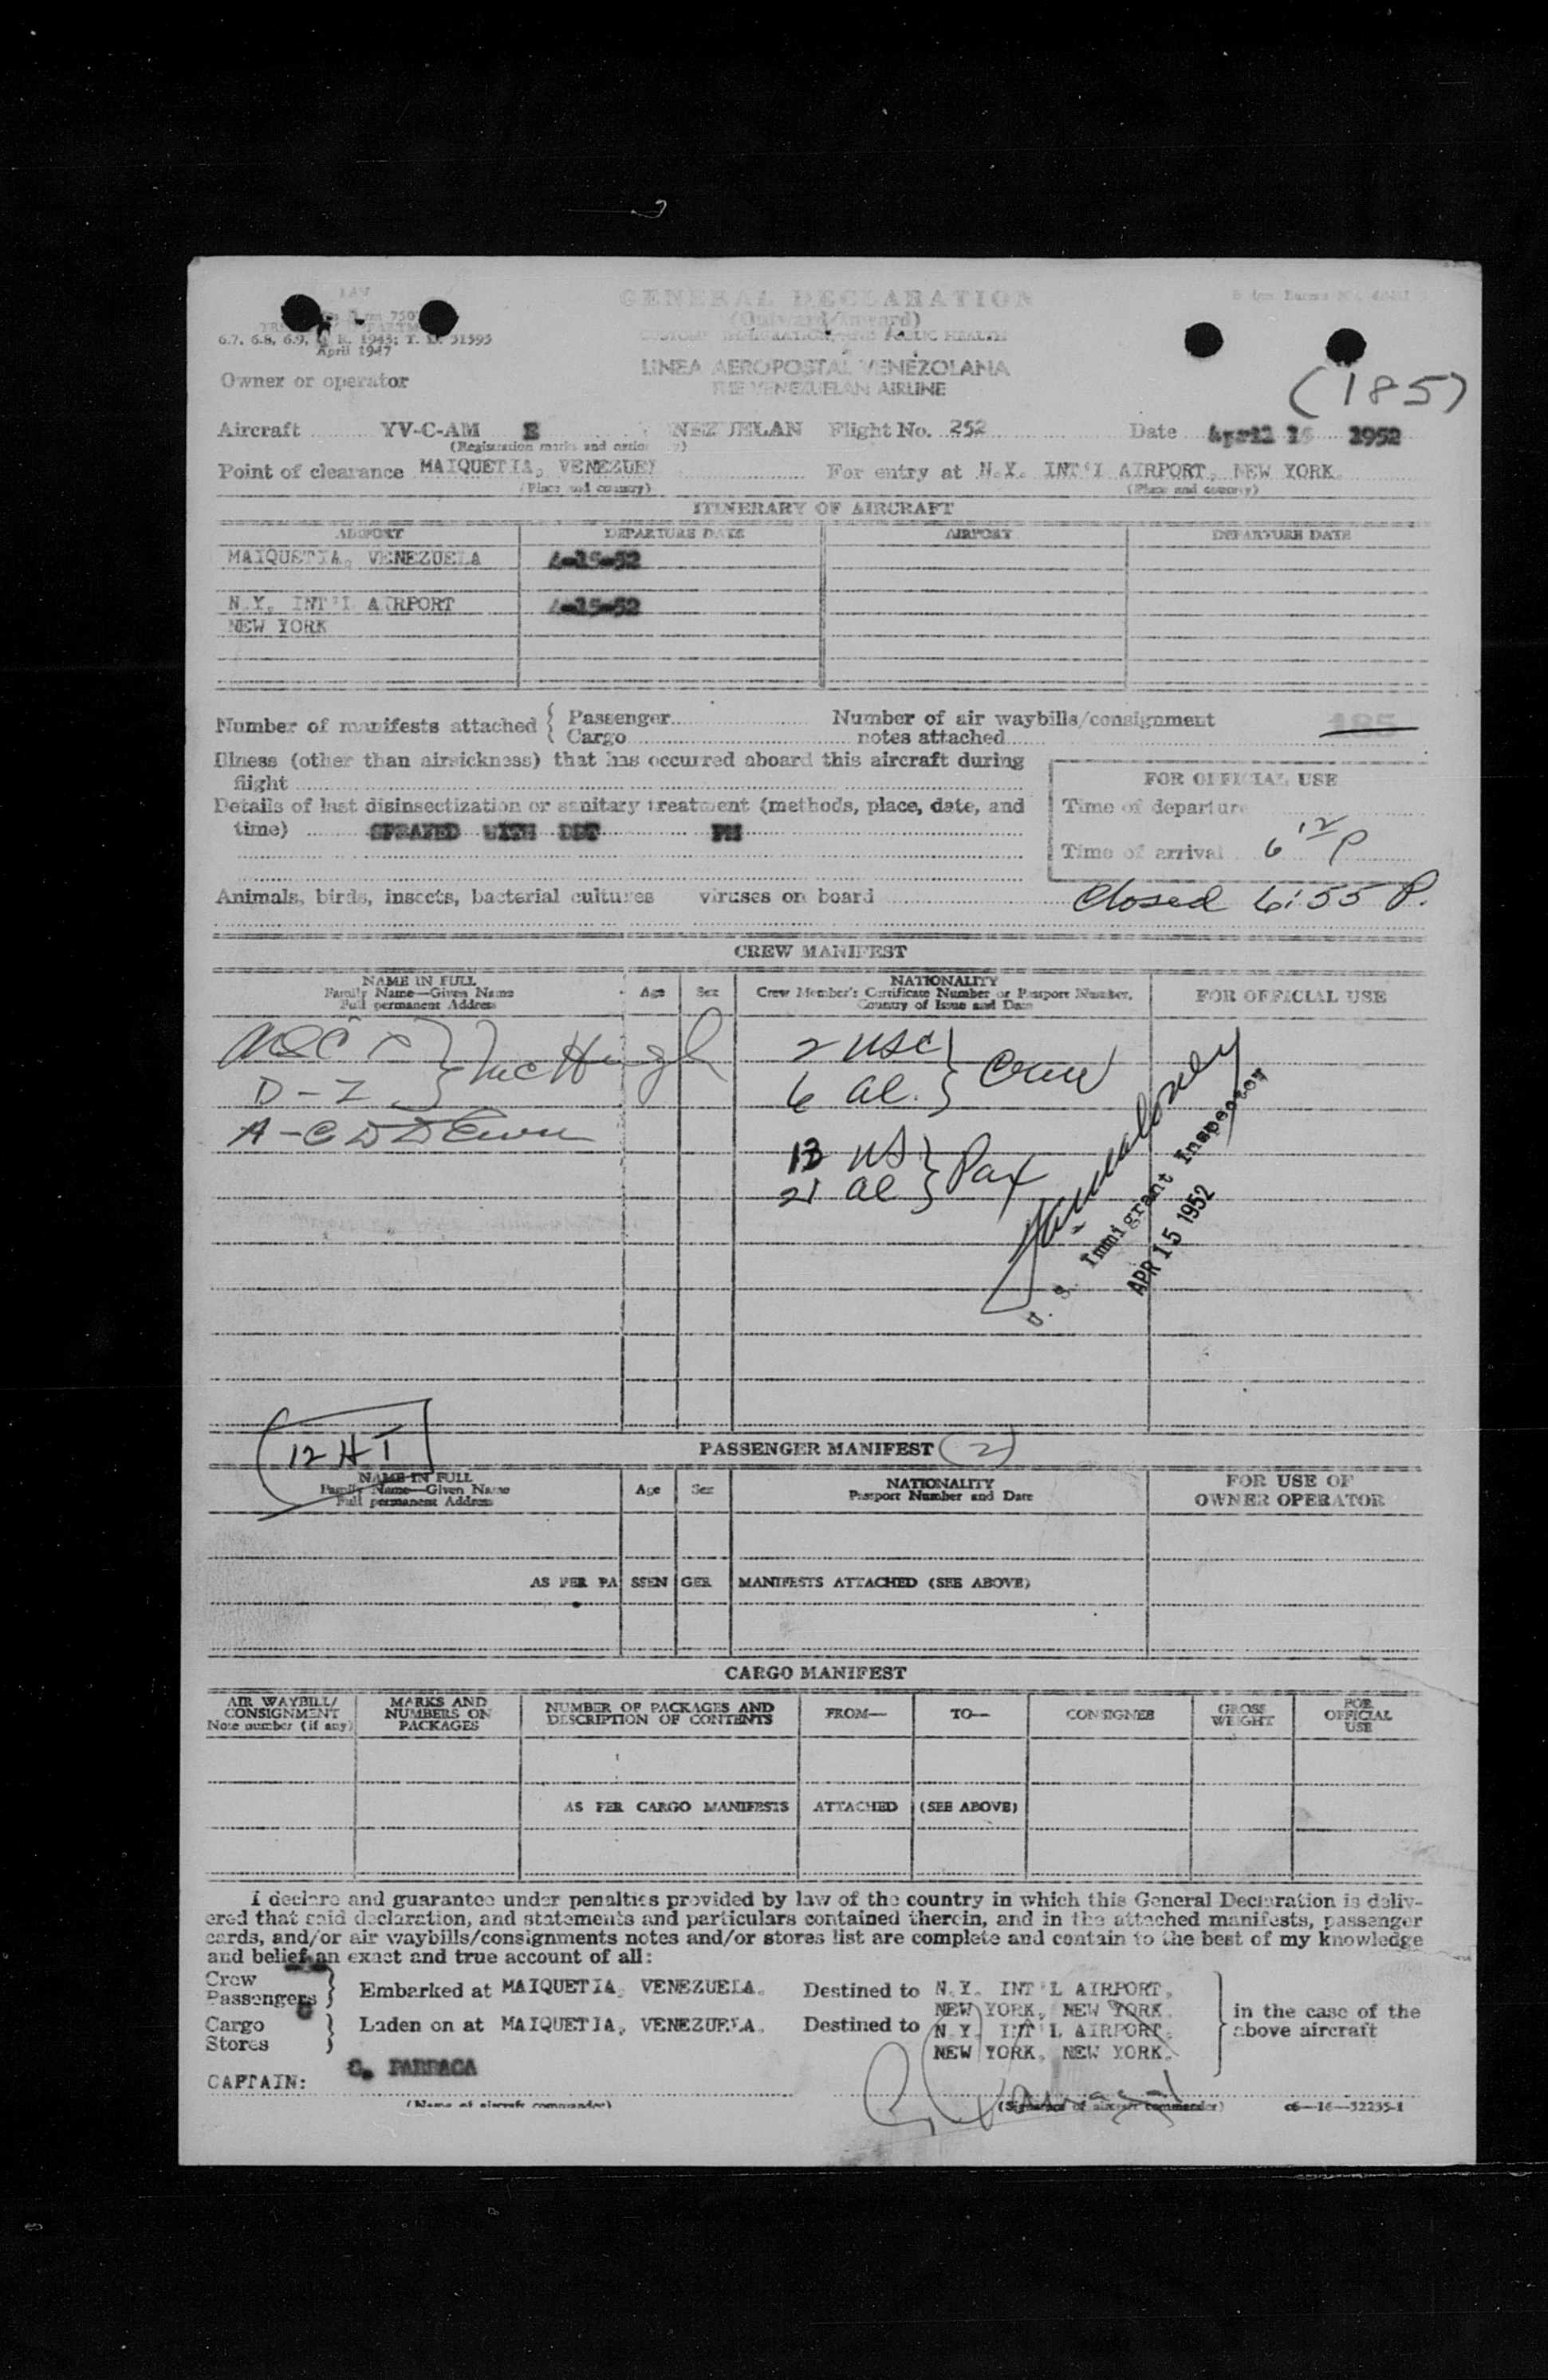 LAV
GENERAL DECLARATION
(Outward/Inward)
6.7, 6.8, 6.9, C. R. 1943; T. D. 51595
April 1947
LINEA AEROPOSTAL VENEZOLANA
THE VENEZUELAN AIRLINE
Owner or operator
(185)
Aircraft YV-C-AM E NEZUELAN Flight No. 252 Date April 15 1952
Point of clearance MAIQUETIA, VENEZUE For entry at N.Y. INT'L AIRPORT, NEW YORK.
(Place and country) (Place and country)
ITINERARY OF AIRCRAFT
AIRPORT DEPARTURE DATE AIRPORT DEPARTURE DATE
MAIQUETIA, VENEZUELA 4-15-52
N.Y. INT'L AIRPORT 4-15-52
NEW YORK
Number of manifests attached { Passenger Number of air waybills/consignment 185
Cargo notes attached
Illness (other than airsickness) that has occurred aboard this aircraft during
flight
FOR OFFICIAL USE
Details of last disinsectization or sanitary treatment (methods, place, date, and
time) SPRAYED WITH DDT PM
Time of departure
Time of arrival 6 12 P
Animals, birds, insects, bacterial cultures viruses on board
Closed 6:55 P.
CREW MANIFEST
NAME IN FULL
Family Name—Given Name
Full permanent Address
Age Sex
NATIONALITY
Crew Member's Certificate Number or Passport Number,
Country of Issue and Date
FOR OFFICIAL USE
McHugh
D-Z
2 USC } Crew
6 al.
13 US } Pax
21 al
U. S. Immigrant Inspector
APR 15 1952
12 HI
PASSENGER MANIFEST (2)
NAME IN FULL
Family Name—Given Name
Full permanent Address
Age Sex
NATIONALITY
Passport Number and Date
FOR USE OF
OWNER OPERATOR
AS PER PASSENGER MANIFESTS ATTACHED (SEE ABOVE)
CARGO MANIFEST
AIR WAYBILL/
CONSIGNMENT
Note number (if any)
MARKS AND
NUMBERS ON
PACKAGES
NUMBER OF PACKAGES AND
DESCRIPTION OF CONTENTS
FROM— TO— CONSIGNEE
GROSS
WEIGHT
FOR
OFFICIAL
USE
AS PER CARGO MANIFESTS ATTACHED (SEE ABOVE)
I declare and guarantee under penalties provided by law of the country in which this General Declaration is deliv-
ered that said declaration, and statements and particulars contained therein, and in the attached manifests, passenger
cards, and/or air waybills/consignments notes and/or stores list are complete and contain to the best of my knowledge
and belief an exact and true account of all:
Crew
Passengers } Embarked at MAIQUETIA, VENEZUELA. Destined to N.Y. INT'L AIRPORT,
NEW YORK, NEW YORK.
in the case of the
above aircraft
Cargo
Stores } Laden on at MAIQUETIA, VENEZUELA. Destined to N.Y. INT'L AIRPORT,
NEW YORK, NEW YORK.
CAPTAIN:
(Name of aircraft commander) (Signature of aircraft commander) c6—16—52235-1